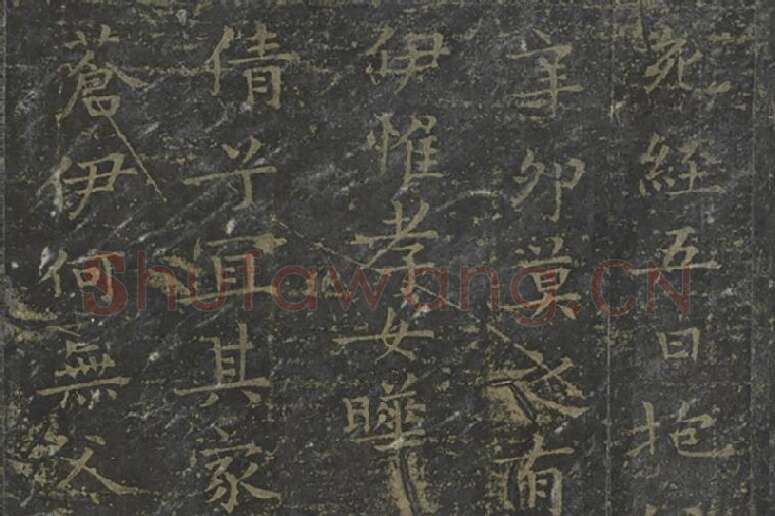 死經五日抱
辛卯莫之有
伊惟孝女曄
倩兮宜其家
蒼伊何無父
Shufawang.CN